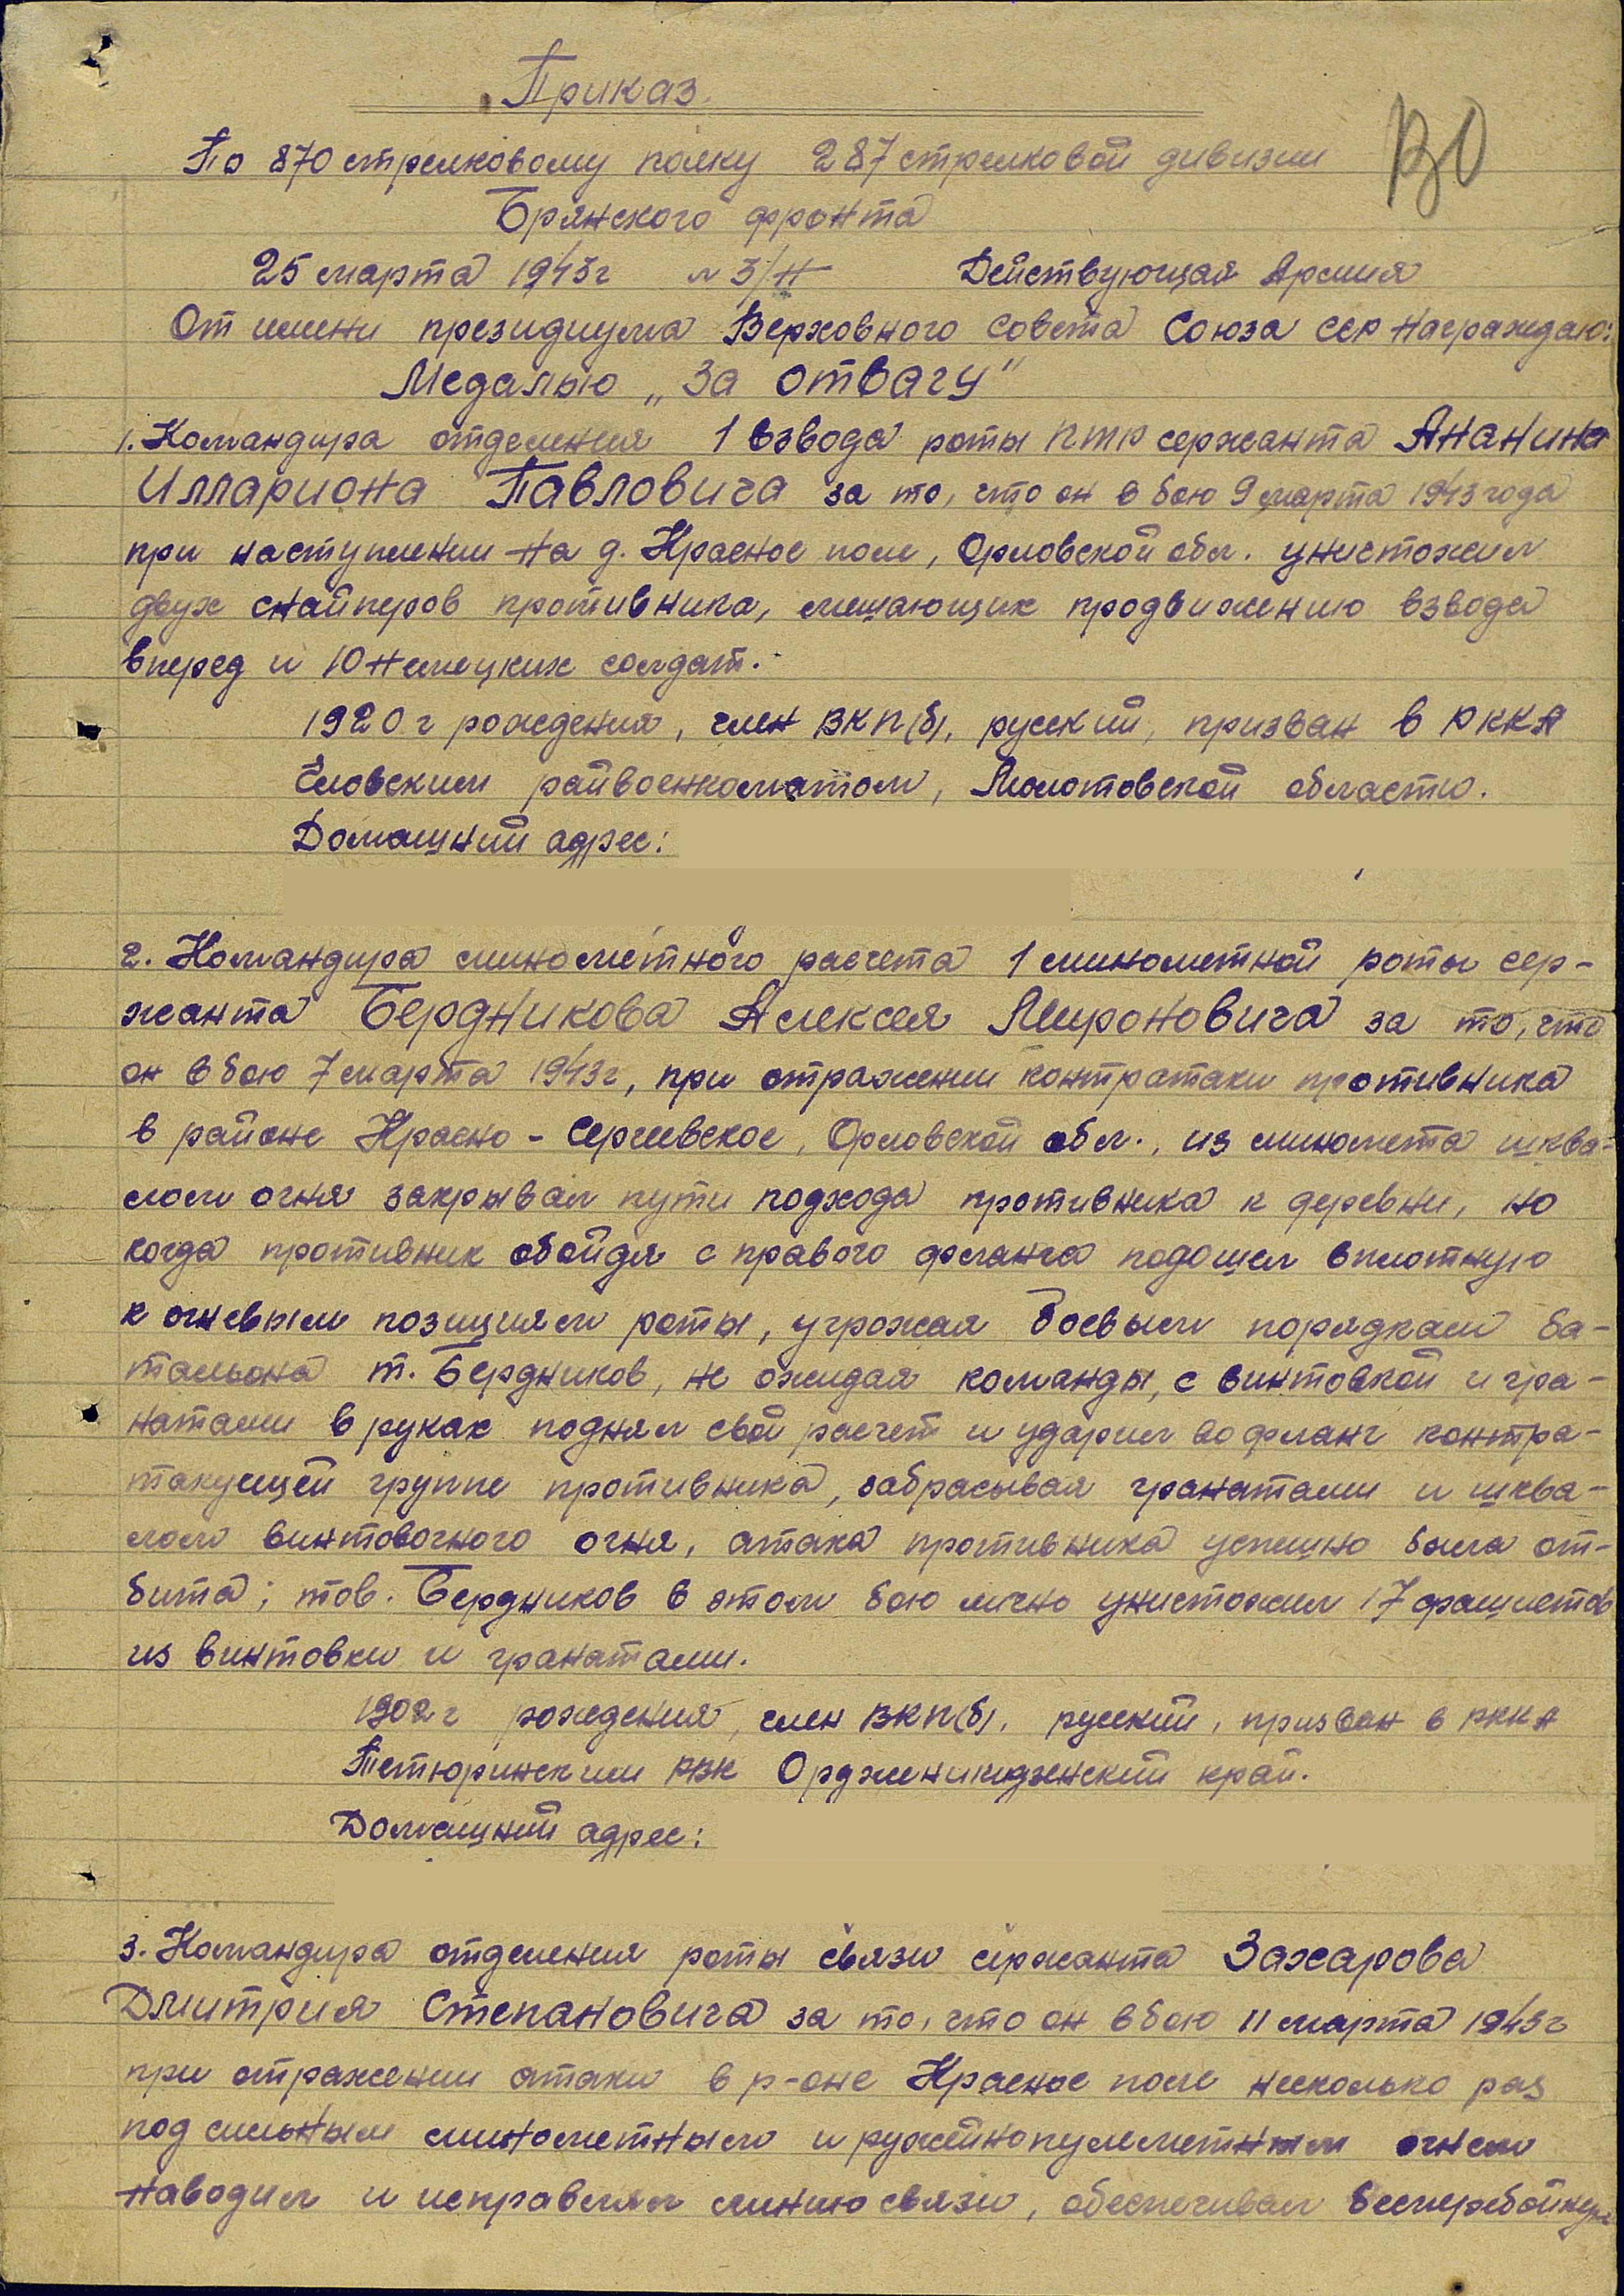 Приказ
По 870 стрелковому полку 287 стрелковой дивизии
Брянского фронта
25 марта 1943г № 3/Н Действующая Армия
От имени президиума Верховного Совета Союза ССР награждаю:
Медалью „За отвагу"
1. Командира отделения 1 взвода роты ПТР сержанта Ананина
Иллариона Павловича за то, что он в бою 9 марта 1943 года
при наступлении на д. Красное поле, Орловской обл. уничтожил
двух снайперов противника, мешающих продвижению взвода
вперед и 10 немецких солдат.
1920 г рождения, член ВКП(б), русский, призван в РККА
Еловским райвоенкоматом, Молотовской области.
Домашний адрес:
2. Командира минометного расчета 1 минометной роты сер-
жанта Бердникова Алексея Мироновича за то, что
он в бою 7 марта 1943г, при отражении контратаки противника
в районе Красно-Сергиевское, Орловской обл., из миномета шква-
лом огня закрывал пути подхода противника к деревни, но
когда противник обойдя с правого фланга подошел вплотную
к огневым позициям роты, угрожая боевым порядкам ба-
тальона т. Бердников, не ожидая команды, с винтовкой и гра-
натами в руках поднял свой расчет и ударил во фланг контра-
такующей группе противника, забрасывая гранатами и шква-
лом винтовочного огня, атака противника успешно была от-
бита; тов. Бердников в этом бою лично уничтожил 17 фашистов
из винтовки и гранатами.
1902 г рождения, член ВКП(б), русский, призван в РККА
РВК Орджоникидженский край.
Домашний адрес:
3. Командира отделения роты связи сержанта Захарова
Дмитрия Степановича за то, что он в бою 11 марта 1943г
при отражении атаки в р-оне Красное поле несколько раз
под сильным минометным и ружейнопулеметным огнем
наводил и исправлял линию связи, обеспечивал бесперебойную